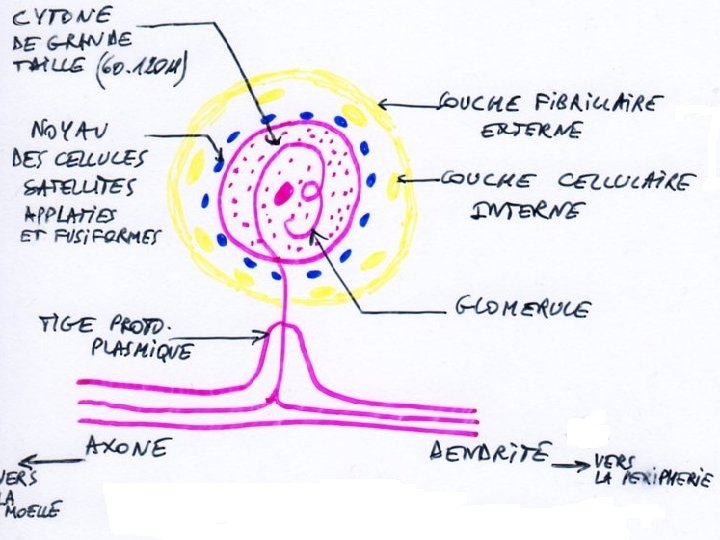 CYTONE
DE GRANDE
TAILLE (60.120µ)
COUCHE FIBRILLAIRE
EXTERNE
NOYAU
DES CELLULES
SATELLITES
APPLATIES
ET FUSIFORMES
COUCHE CELLULAIRE
INTERNE
GLOMERULE
TIGE PROTO.
PLASMIQUE
AXONE
DENDRITE
VERS
LA
MOELLE
VERS
LA PERIPHERIE